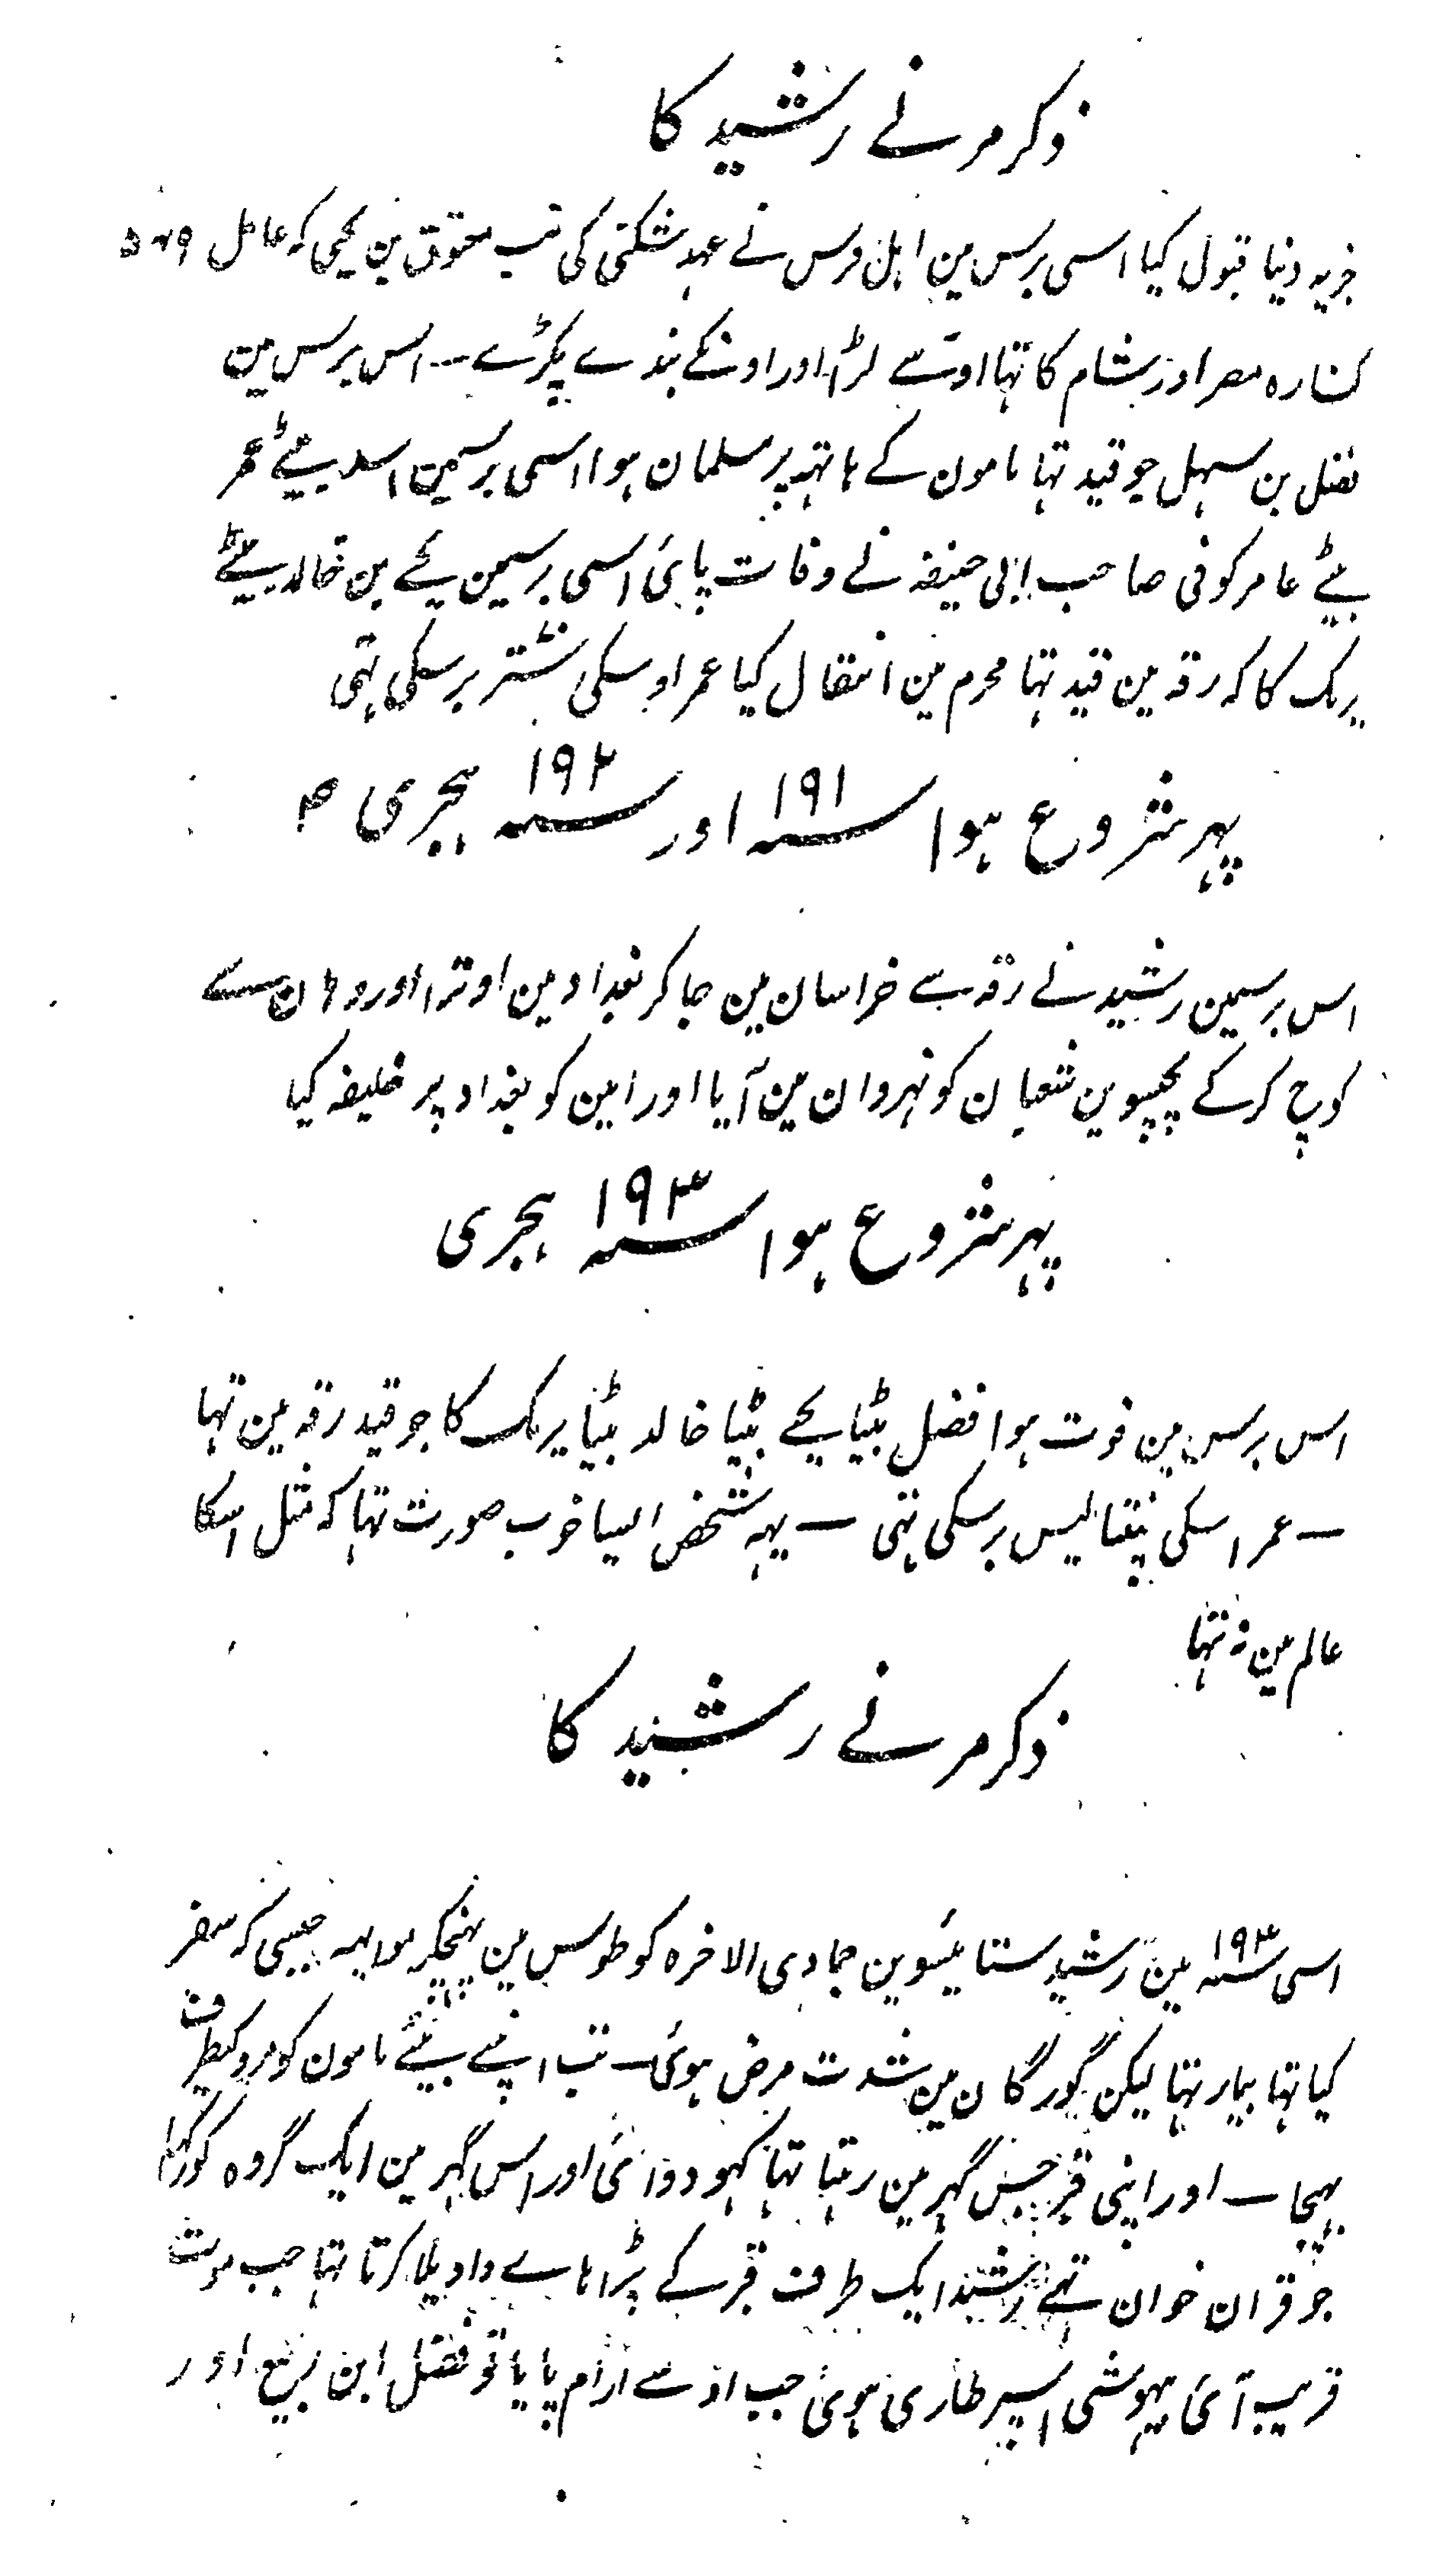 ذکر مرنے رشید کا
جزیہ دنیا قبول کیا اسی برس مین اہل قبرس نے عہد شکنی کی تب معتوق بن یحیی کہ عامل ۵۶۹
کنارہ مصر اور شام کا تہا اوسے لڑا اور اونکے بندے پکڑے -- اس برس مین
فضل بن سہل جو قید تہا مامون کے ہاتہہ پر مسلمان ہوا اسی برسمین اسد بیٹے عمر
بیٹے عامر کوفی صاحب ابی حنیفہ نے وفات پائی اسی برسمین یحے بن خالد بیٹے
برمک کا کہ رقہ مین قید تہا محرم مین انتقال کیا عمر اوسکی ستتر برسکی تہی
پہر شروع ہوا سنہ ۱۹۱ اور سنہ ۱۹۲ ہجری
اس برسمین رشید نے رقہ سے خراسان مین جا کر بغداد مین اوترا اور وہان سے
کوچ کرکے پچیسوین شعبان کو نہروان مین آیا اور امین کو بغداد پر خلیفہ کیا
پہر شروع ہوا سنہ ۱۹۳ ہجری
اس برس مین فوت ہوا فضل بیٹیا یحے بیٹیا خالد بیٹیا برمک کا جو قید رقہ مین تہا
— عمر اسکی پنتالیس برسکی تہی — یہہ شخص ایسا خوب صورت تہا کہ مثل اسکا
عالم مین نہ تہا
ذکر مرنے رشید کا
اسی سنہ ۱۹۳ مین رشید ستائیسوین جمادی الاخرہ کو طوس مین پہنچکر موا یہہ جیسی کہ سفر
کیا تہا بیمار تہا لیکن گورگان مین شدت مرض ہوئی — تب اپنے بیٹے مامون کو مرو کیطرف
بہیجا — اور اپنی قبر جس گہر مین رہتا تہا کہودوائی اور اس گہر مین ایک گروہ کو رکہا
جو قران خوان تہے رشید ایک طرف قبر کے پڑا ہاے واویلا کرتا تہا جب موت
قریب آئی بیہوشی اسپر طاری ہوئی جب اوسے ارام پایا تو فضل ابن ربیع اور